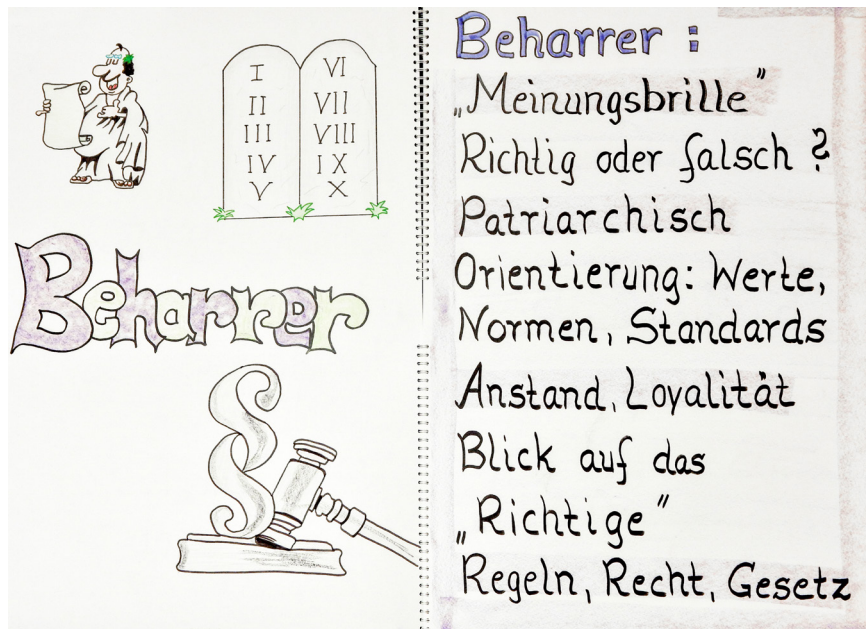 I
II
III
IV
V
VI
VII
VIII
IX
X
Beharrer
§
Beharrer :
„Meinungsbrille"
Richtig oder falsch ?
Patriarchisch
Orientierung: Werte,
Normen, Standards
Anstand, Loyalität
Blick auf das
„Richtige"
Regeln, Recht, Gesetz